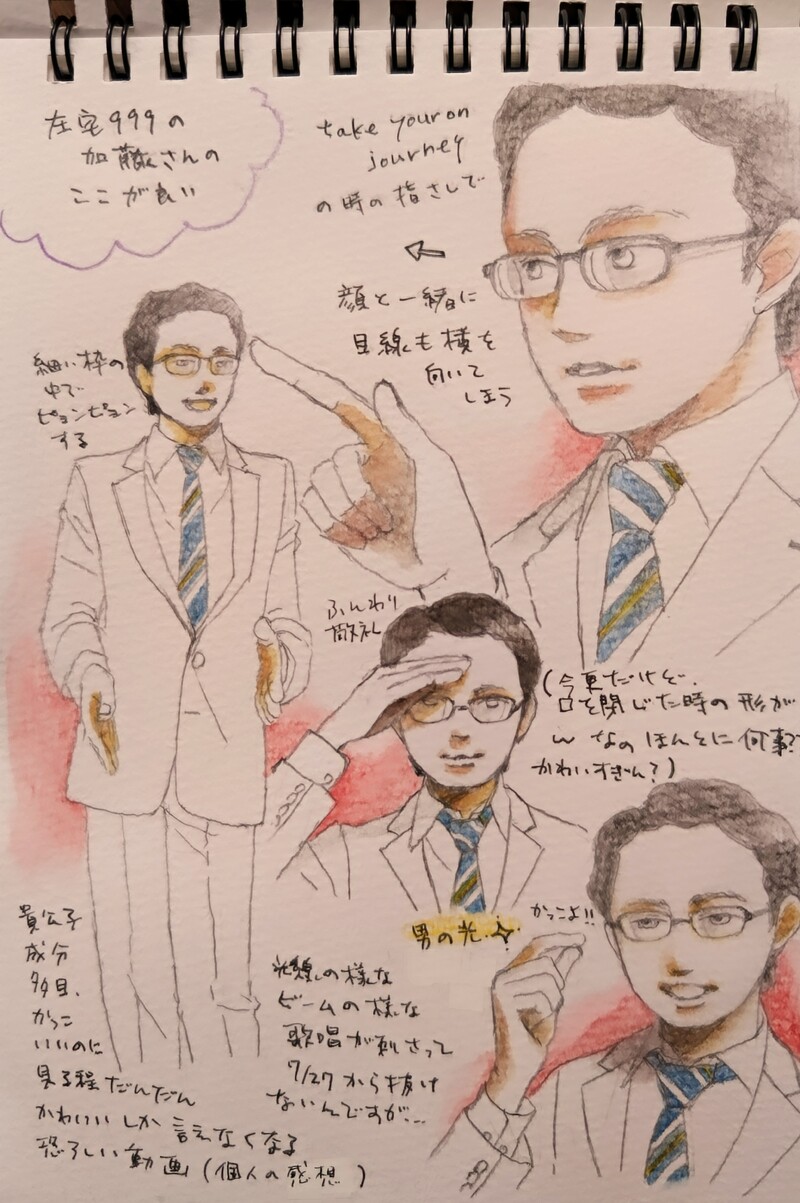 在宅999の
加藤さんの
ここが良い
take your on
journey
の時の指さしで
顔と一緒に
目線も横を
向いて
しまう
細い枠の
中で
ピョンピョン
する
ふんわり
敬礼
(今更だけど、
口を閉じた時の形が
w なのほんとに何事?
かわいすぎん?)
かっこよ!!
男の光
貴公子
成分
多目、
かっこ
いいのに
見る程だんだん
かわいいしか言えなくなる
恐ろしい動画(個人の感想)
光線の様な
ビームの様な
歌唱が刺さって
7/27から抜け
ないんですが…